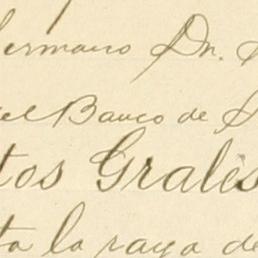 hermano Dn.
del Banco de
tos Grales
ta la raya de